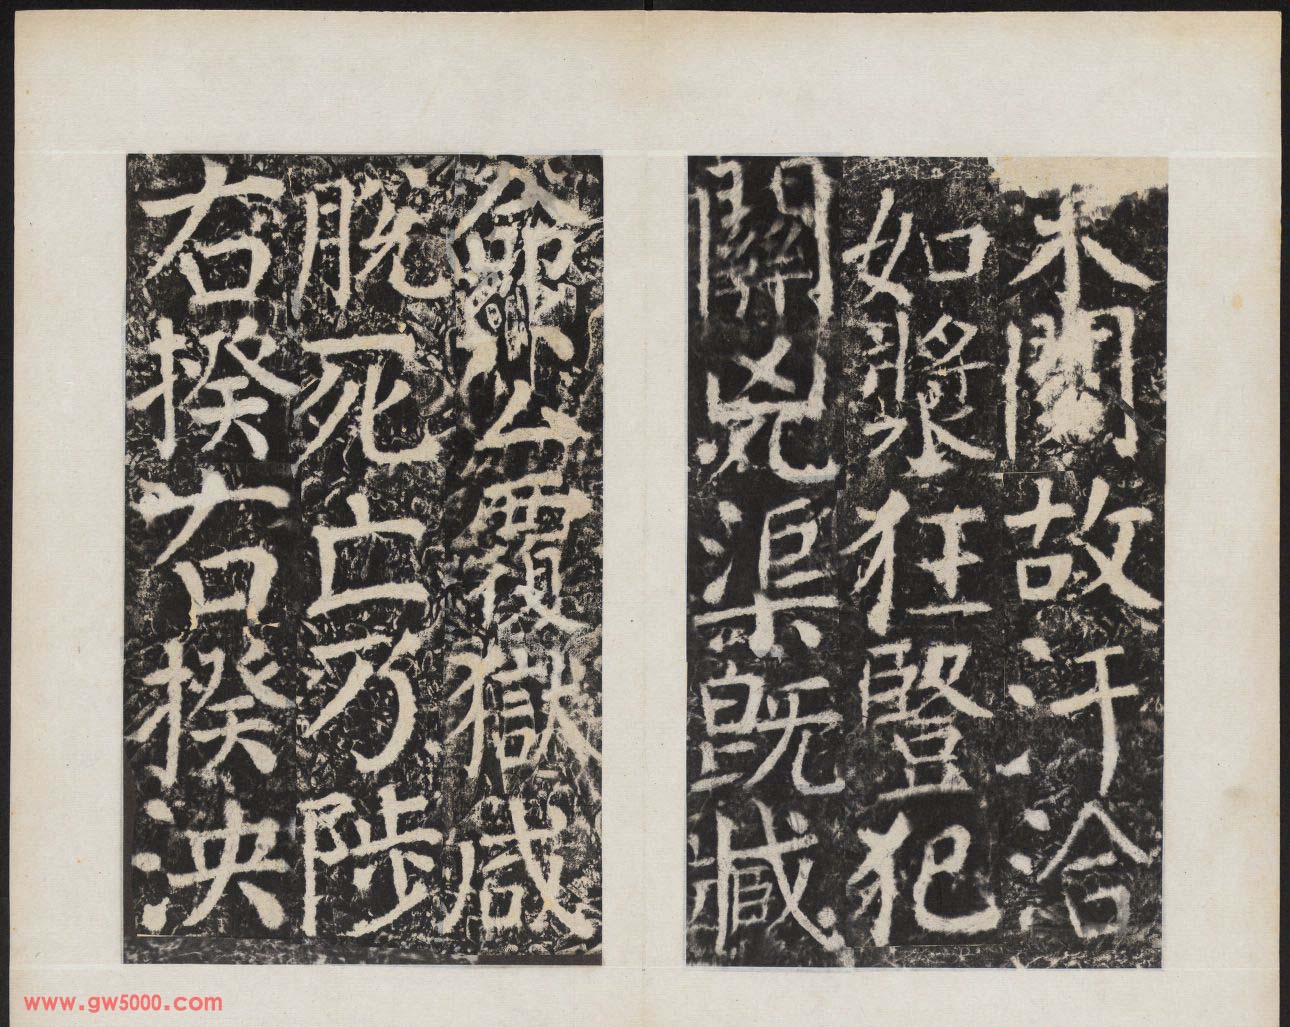 木故汗洽
如漿狂豎犯
關兇渠既臧
命公覆獄咸
脫死亡乃陟
右揆右揆泱
www.gw5000.com